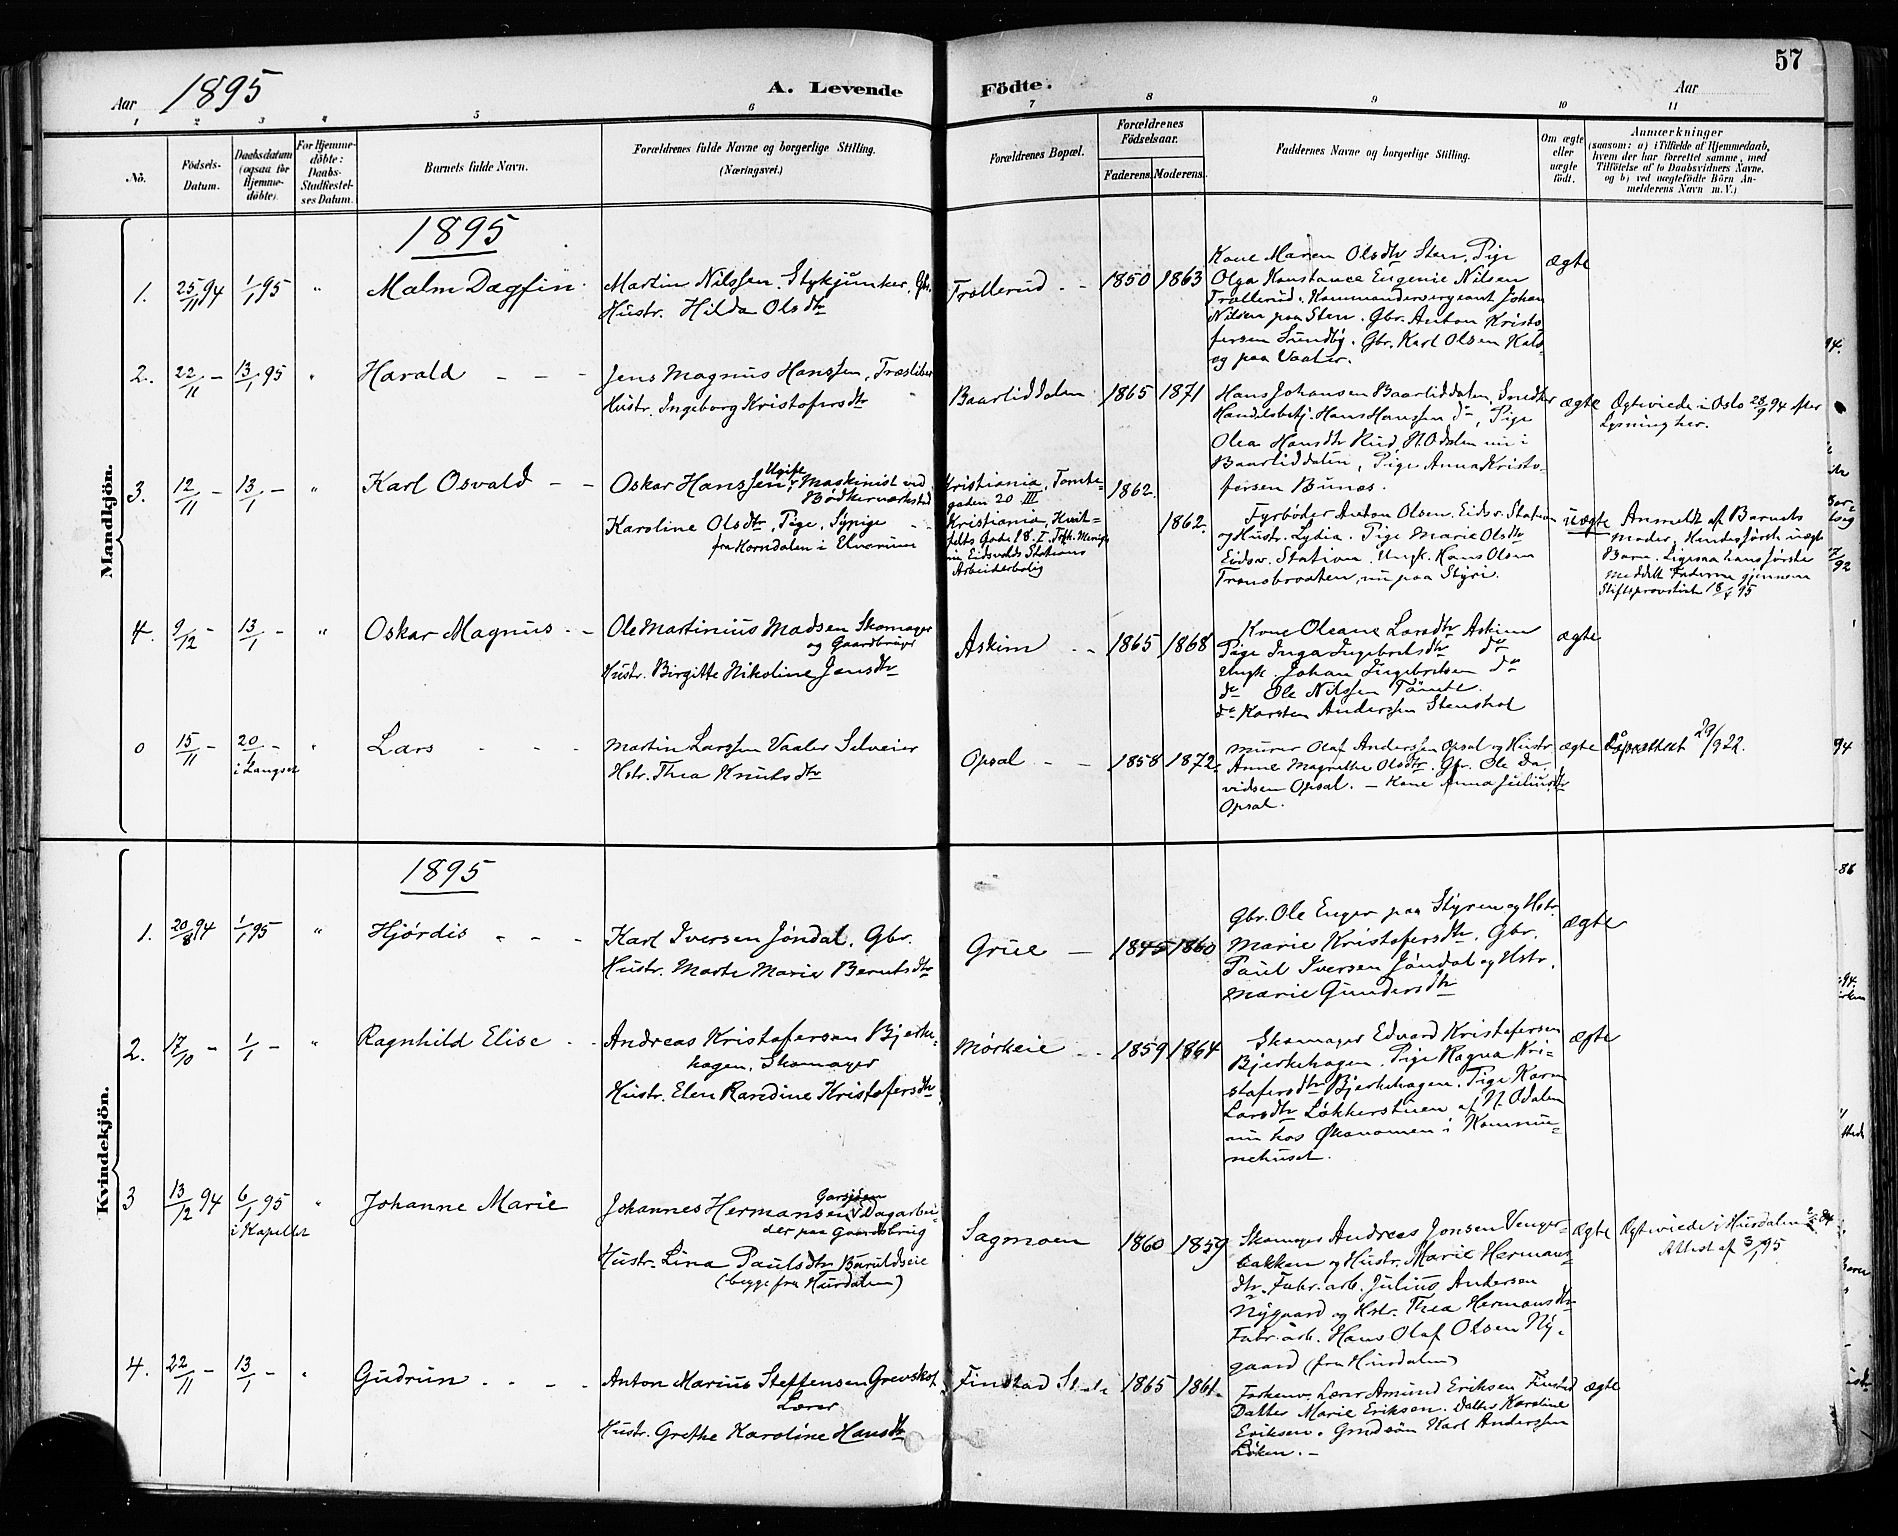 57
Aar 1895
A. Levende Födte.
Aar
1 2 3 4 5 6 7 8 9 10 11
No.
Födsels-Datum.
Daabsdatum (ogsaa for Hjemme-döbte).
For Hjemme-döbte: Daabs-Stadfæstel-ses Datum.
Barnets fulde Navn.
Forældrenes fulde Navne og borgerlige Stilling.
(Næringsvei.)
Forældrenes Bopæl.
Forældrenes Födselsaar.
Faderens. Moderens.
Faddernes Navne og borgerlige Stilling.
Om ægte eller uægte födt.
Anmærkninger
(saasom: a) i Tilfælde af Hjemmedaab,
hvem der har forrettet samme, med
Tilföielse af to Daabsvidners Navne.
og b) ved uægtefödte Börn An-
melderens Navn m. V.)
Mandkjön.
1895
1. 25/11 94 1/1 95 " Malm Dagfin
Martin Nilssen, Stykjunker, Gbr.
Hustr. Hilda Olsdtr
Trollerud 1850 1863
Kone Maren Olsdtr Sten, Pige
Olga Konstance Eugenie Nilsen
Trollerud. Kommandersergeant Johan
Nilsen paa Sten. Gbr. Anton Kristo-
fersen Sundby. Gbr. Karl Olsen
og paa Vaaler.
ægte
2. 22/11 – 13/1 95 " Harald
Jens Magnus Hanssen, Træsliber
Hustr. Ingeborg Kristofersdtr
Baarliddalen 1865 1871
Hans Johansen Baarliddalen, Snedker
Handelsbetj. Hans Hanssen do, Pige
Olea Hansdtr Rud, N. Odalen nu i
Baarliddalen, Pige Anna Kristo-
fersen Bunes.
ægte
Ægteviede i Oslo 28/9 94 efter
Lysning her.
3. 12/11 – 13/1 – " Karl Osvald
Oskar Hanssen, Ugift Maskinist ved
Bödkerværksted
Karoline Olsdtr, Pige, Sypige
fra Horndalen i Elverum
Kristiania, Tomte-
gaden 20 III
Kristiania, Hvit-
felts Gade 18 I.
Eidsvolds Stations
Arbeiderbolig
1862. 1862.
Fyrböder Anton Olsen Eidsv. Station
og Hustr. Lydia. Pige Marie Olsdtr
Eidsv. Station. Ungk. Hans Olsen
Trønsbraaten, nu paa Styri.
uægte
Anmeldt af Barnets
Moder, Hendes første uægte
Barn. Ligesaa hans første
Meddelt Faderen gjennem
Stiftsprovstiet 18/1 95
4. 9/12 – 13/1 – " Oskar Magnus
Ole Martinius Madsen Skomager
og Gaardbruger
Hustr. Birgitte Nikoline Jensdtr
Askim 1865 1868
Kone Oleane Larsdtr Askim
Pige Inga Ingebretsdtr do
Ungk. Johan Ingebretsen do
do Ole Nilssen Tömte.
do Karsten Anderssen Stenshol
ægte
0 15/11 – 20/1 – i Langset " Lars
Martin Larssen Vaaler Selveier
Hstr. Thea Knutsdtr
Opsal 1858 1872
Murer Olaf Anderssen Opsal og Hustr
Anne Magrethe Olsdtr. Gbr. Ole Da-
vidsen Opsal. – Kone Anna Juliusdtr
Opsal.
ægte
23/9 22.
Kvindekjön.
1895
1. 20/8 94 1/1 95 " Hjördis
Karl Iversen Jöndal, Gbr.
Hustr. Marte Marie Berntsdtr
Grue 1845 1860
Gbr. Ole Enger paa Styren og Hstr.
Marie Kristofersdtr. Gbr.
Paul Iversen Jöndal og Hstr.
Marie Gundersdtr
ægte
2. 17/10 – 1/1 – " Ragnhild Elise
Andreas Kristofersen Bjerke-
hagen, Skomager
Hustr. Elen Randine Kristofersdtr
Mörkeie 1859 1864
Skomager Edvard Kristofersen
Bjerkehagen. Pige Ragna Kri-
stofersdtr Bjerkehagen. Pige Karen
Larsdtr Løkkerstuen af N. Odalen
nu hos Økonomen i Kommu-
nehuset.
ægte
3 13/12 94 6/1 95 i Kapellet " Johanne Marie
Johannes Hermansen Garsjøen Dagarbei-
der paa Gaardsbrug
Hustr. Lina Paulsdtr Buruldseie
(begge fra Hurdalen)
Sagmoen 1860 1859
Skomager Andreas Jonsen Venger-
bakken og Hustr. Marie Hermans-
dtr. Fabr. arb. Julius Andersen
Nygaard og Hstr. Thea Hermansdtr
Fabr. arb. Hans Olaf Olsen Ny-
gaard (fra Hurdalen)
ægte
Ægteviede i Hurdalen
Attest af 3/1 95
4. 22/11 – 13/1 – " Gudrun
Anton Marius Steffensen Grevskot
Lærer
Hustr. Grethe Karoline Hansdtr
Finstad Skole 1865 1861
Forhenv. Lærer Amund Eriksen Finstad
Datter Marie Eriksen. Datter Karoline
Eriksen. Grudsön Karl Anderssen
Löken. –
ægte